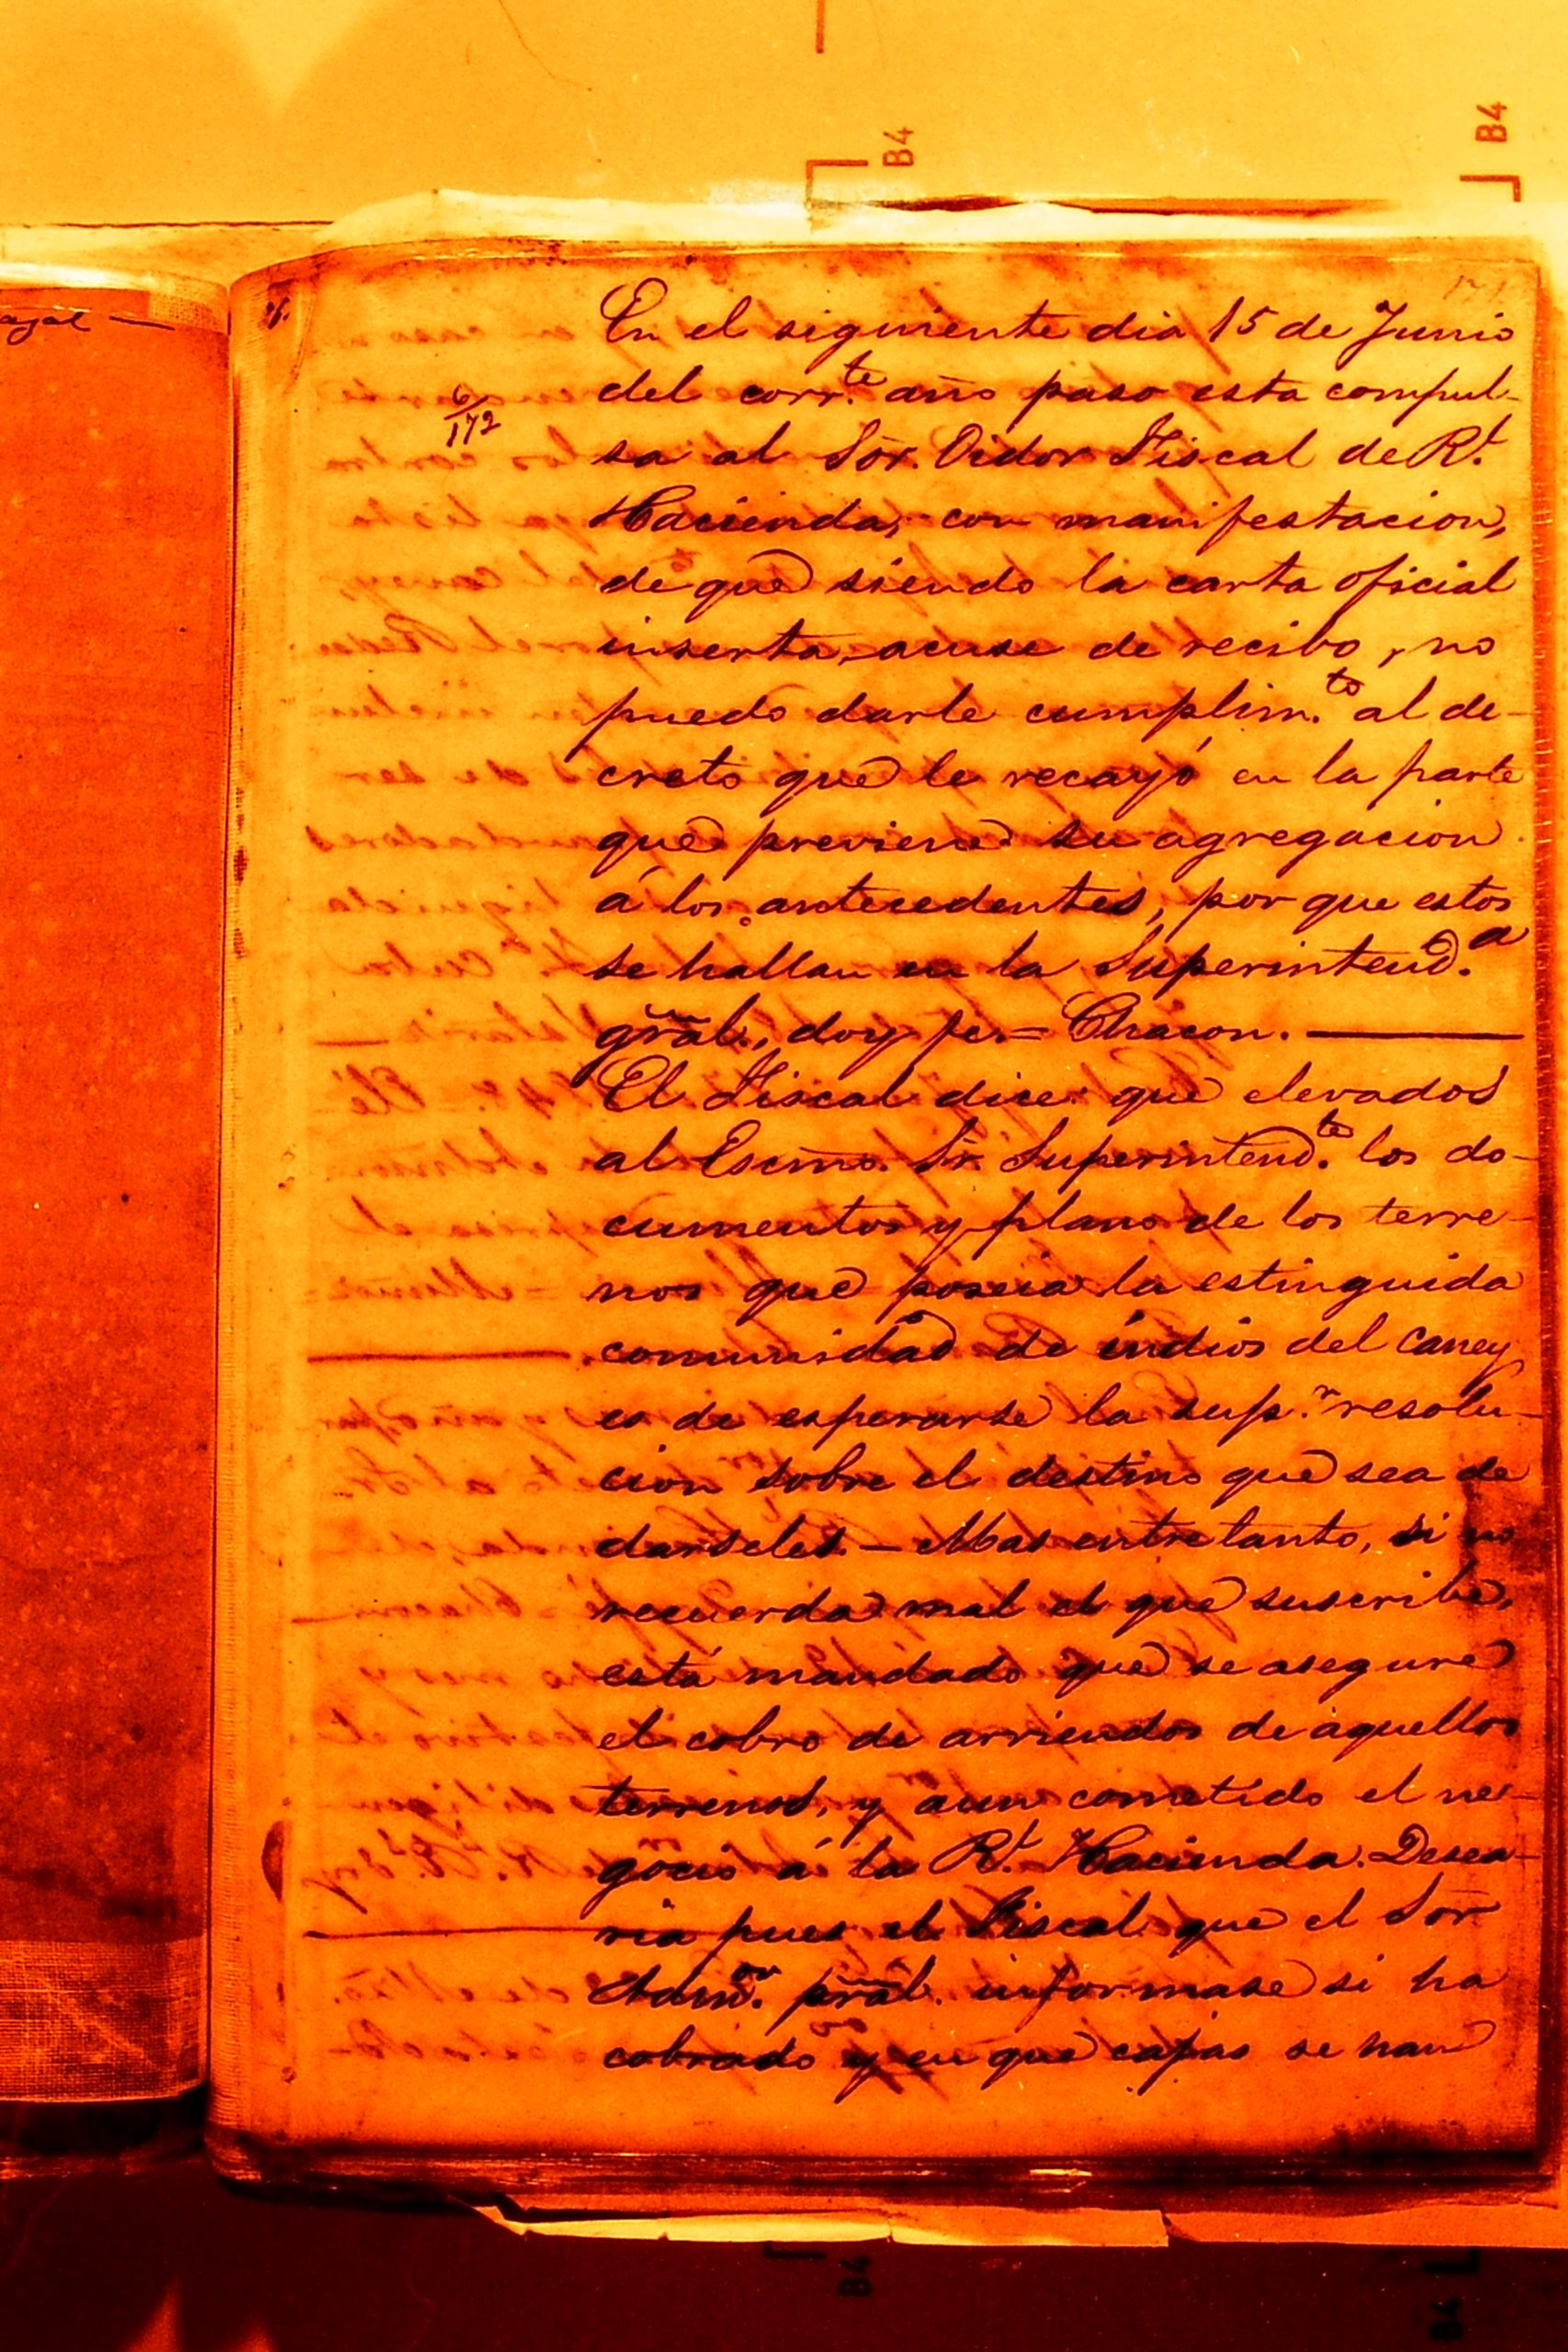 B4
B4
ajal —
6
172
En el siguiente dia 15 de Junio
del corr.te año paso esta compul-
sa al Sõr. Oidor Fiscal de Rl.
Hacienda, con manifestacion,
de que siendo la carta oficial
inserta, acuse de recibo, no
puedo darle cumplim.to al de-
creto que le recayó en la parte
que previene su agregacion
á los antecedentes, por que estos
se hallan en la Superintend.a
grãl., doy fe.= Chacon. —
El Fiscal dice: que elevados
al Escmõ. Sr. Superintend.te los do-
cumentos y plano de los terre-
nos que poseia la estinguida
comunidad de indios del caney
es de esperarse la sup.r resolu-
cion sobre el destino que sea de
darseles.— Mas entre tanto, si no
recuerda mal el que suscribe,
está mandado que se asegure
el cobro de arriendos de aquellos
terrenos, y aun cometido el ne-
gocio á la Rl. Hacienda. Desea-
ria pues el Fiscal que el Sõr
Adm.or prãl. informase si ha
cobrado y en que cajas se han
B4
B4